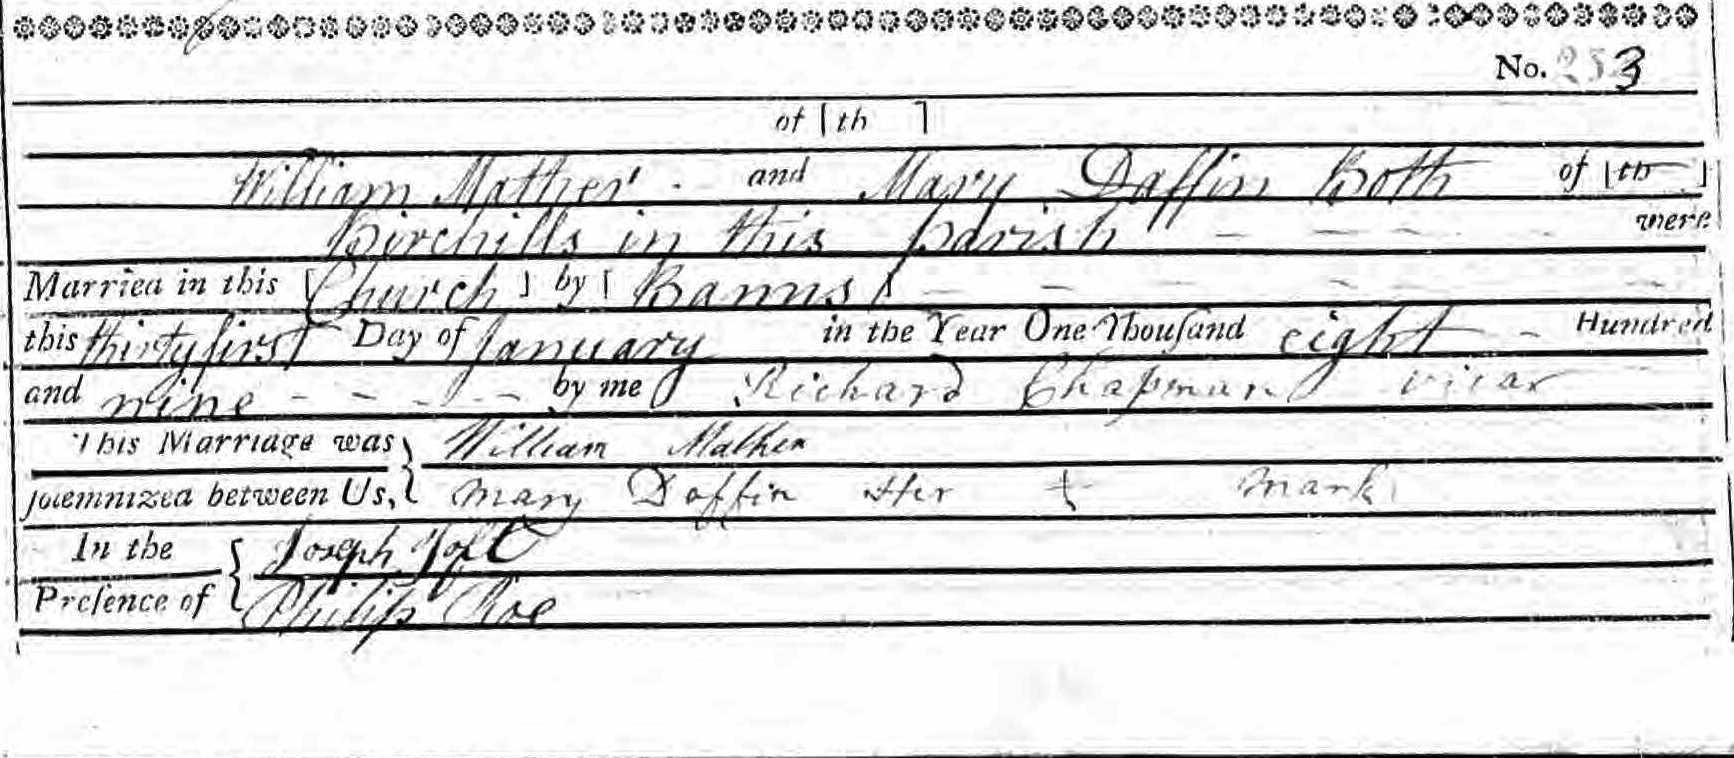 No. 253
of [th ]
William Mather and Mary Daffin Both of [th ]
Birchills in this parish were
Married in this [Church] by [Banns]
this thirty first Day of January in the Year One Thouſand eight Hundred
and nine by me Richard Chapman vicar
This Marriage was William Mather
ſolemnized between Us, Mary Daffin Her + Mark
In the Joseph
Preſence of Philip Roe